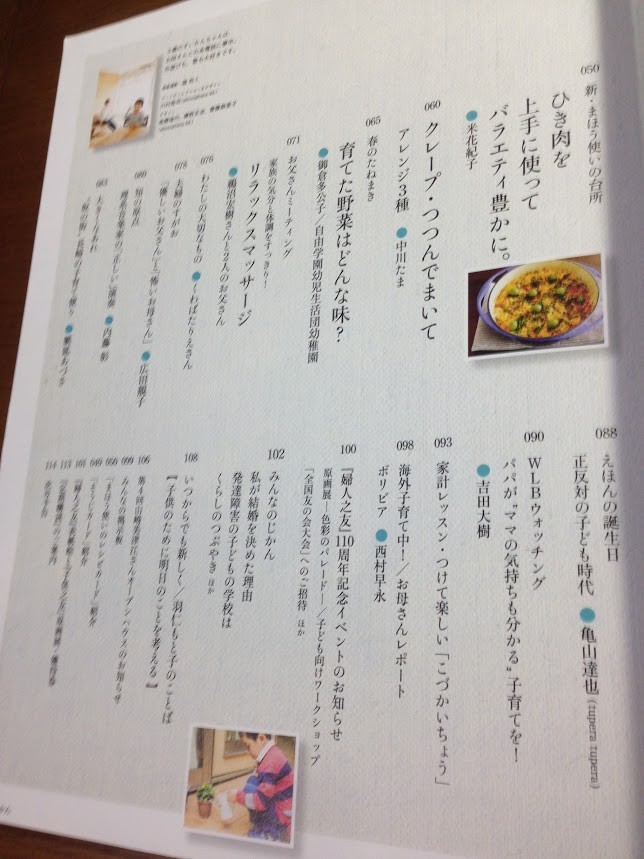 050
新・まほう使いの台所
ひき肉を
上手に使って
バラエティ豊かに。
●米花紀子
060
クレープ・つつんでまいて
アレンジ3種 ●中川たま
065
春のたねまき
育てた野菜はどんな味?
●御倉多公子/自由学園幼児生活団幼稚園
071
お父さんミーティング
家族の気分と体調をすっきり!
リラックスマッサージ
●鵜沼宏樹さんと2人のお父さん
076
わたしの大切なもの ●くわばたりえさん
078
夫婦のすがお
「優しいお父さん」と「怖いお母さん」 ●広田鵬子
080
知の原点
理系音楽家の「正しい」演奏 ●内藤 彰
083
大きくなあれ
088
えほんの誕生日
正反対の子ども時代 ●亀山達也(tupera tupera)
090
WLBウォッチング
パパが“ママの気持ちも分かる”子育てを!
●吉田大樹
093
家計レッスン・つけて楽しい「こづかいちょう」
098
海外子育て中!/お母さんレポート
ボリビア ●西村早永
100
『婦人之友』110周年記念イベントのお知らせ
原画展―色彩のパレード―/子ども向けワークショップ
「全国友の会大会」へのご招待 ほか
102
みんなのじかん
私が結婚を決めた理由
発達障害の子どもの学校は
くらしのつぶやき ほか
108
いつからでも新しく/羽仁もと子のことば
【子供のために明日のことを考える】
106
099
みんなの掲示板
050
「まほう使いのレシピカード」紹介
049
101
113
114